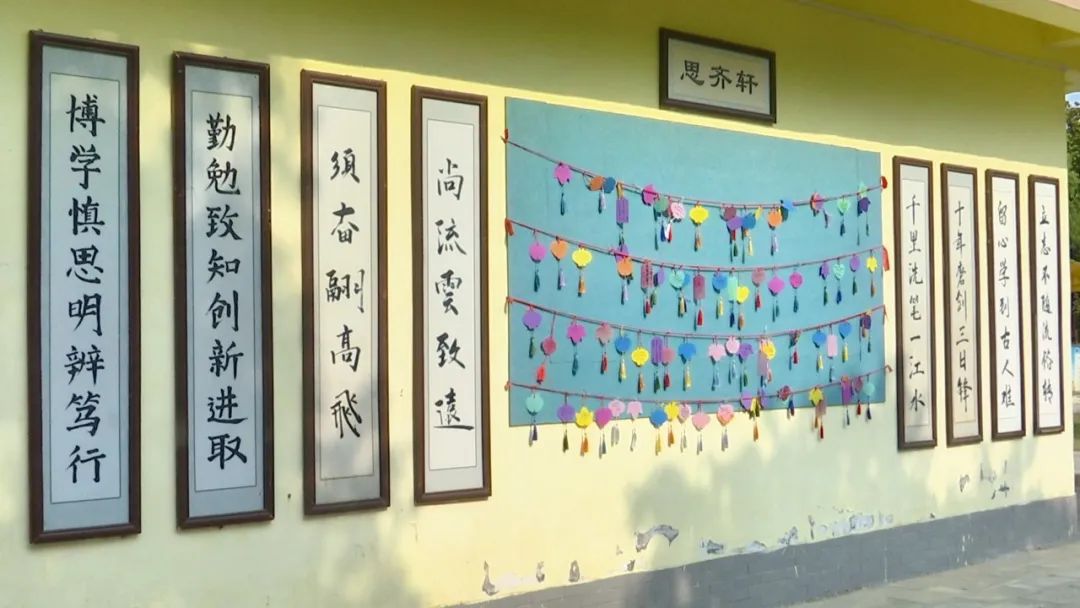 博学慎思明辨笃行
勤勉致知创新进取
須奋翮高飛
尚流雲致遠
思齐轩
千里洗笔一江水
十年磨剑三日锋
留心学到古人难
立志不随流俗转